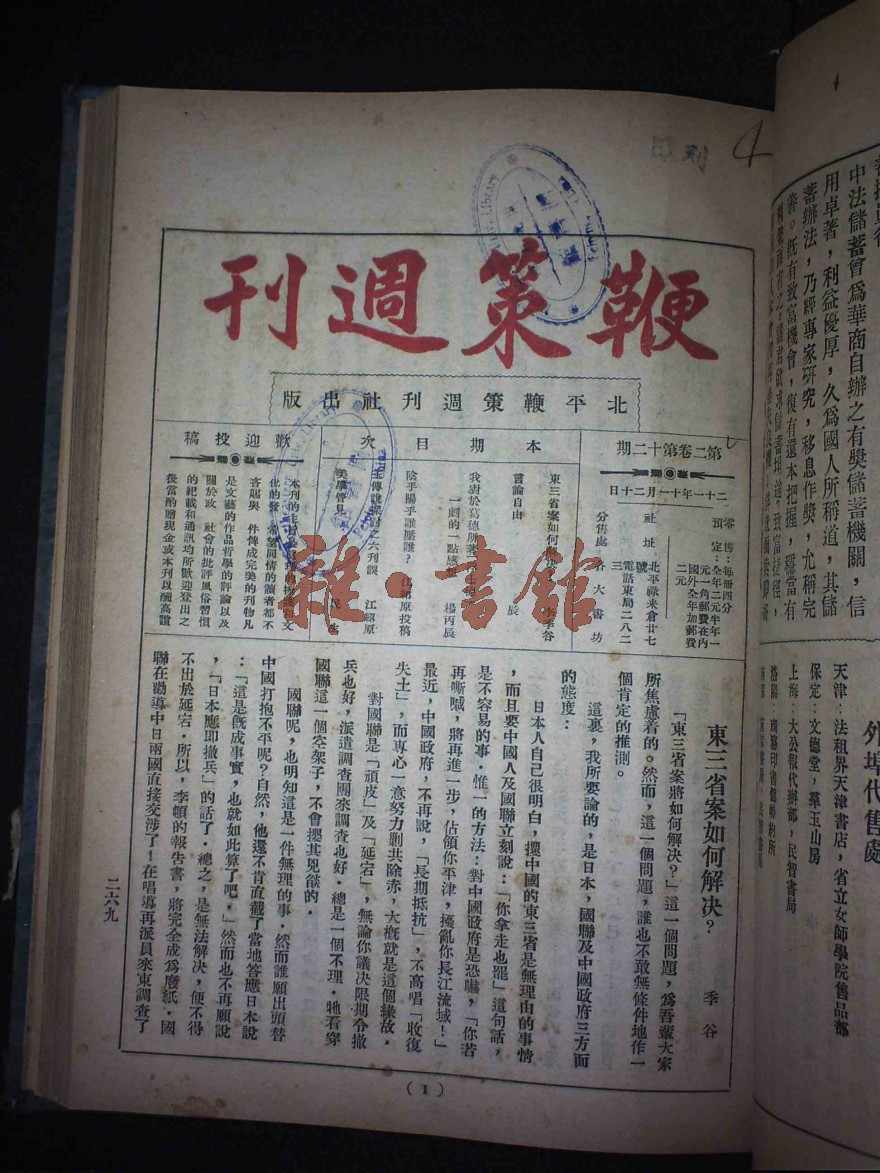 鞭策週刊
北平鞭策週刊社出版
第二卷第十二期
二十一年十一月二十日
零售：每冊四分
預定：全年二元半年一
元一角郵費在內
國外全年加郵費
二元
社址：北平祿米倉廿七
電話東局二八二
三
分售處：各大書坊
本期目次
東三省案如何解決？
李季谷
言論自由
辰
我對於葛德所著
一劇的一點感
楊丙辰
陰乎陽乎誰壓誰？
江紹原投稿
之六刊誤
江紹原
美學管見
歡迎投稿
是文藝的作品哲學的評論以及
社會的批評風俗習慣
的紀載和通訊均所歡迎登出之
後當酌贈現金或本刊以酬高誼
東三省案如何解決？
季谷
「東三省案將如何解決？」這一個問題，爲吾輩大家
所焦慮着的。然而，這一個問題，誰也不敢無條件地作一
個肯定的推測。
這裏，我所要論的，是日本，國聯及中國政府三方面
的態度：
日本人自己很明白，攫中國的東三省是無理由的事情
，而且要中國人及國聯立刻說：「你拿走也罷」這句話，
是不容易的事。惟一的方法：對中國政府是恐嚇，「你若
再嘶喊，將再進一步，佔領你平津，擾亂你長江流域！」
最近，中國政府，不再說，「長期抵抗」，不高唱「收復
失土」，而專心一意努力剿共除赤，大概就是這個緣故。
對國聯是「頑皮」及「延宕」，無論你議決限期令撤
兵也好，派遣調查團來調查也好。總是一個不理。牠看穿
國聯這一個空架子，不會攖其兇燄的。
國聯呢，也明知這是一件無理的事。然而誰願出頭替
中國打抱不平呢？自然，他還不肯直截了當地答應日本說
：「這是旣成事實，也就如此算了吧。」然而也不再願說
，「日本應即撤兵」的話了。總之，是無法解決，便不得
不出於延宕。所以，李頓的報告書，將完全成爲廢紙。國
聯在勸導中日兩國直接交涉了！在唱導再派員來東調查了
二六九
(1)
雜·書館
4
中法儲蓄會爲華商自辦之有獎儲蓄機關，信
用卓著，利益優厚，久爲國人所稱道，其儲
蓄辦法，乃經專家研究，移息作獎，允稱完
善。旣有致富機會，復有還本把握，穩當有
外埠代售處
天津：法租界天津書店，省立女師學院售品部
保定：文德堂，羣玉山房
上海：大公報代辦部，民智書局
洛陽：商務印書館特約所